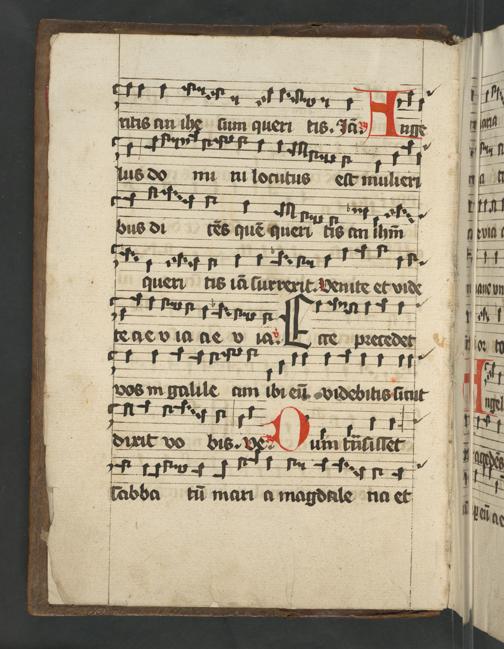 ritis an ihe sum queri tis. Iā. Ange
lus do mi ni locutus est mulieri
bus di cēs quē queri tis an ihm̄
queri tis iā surrexit. Venite et vide
te a e v ia a e v ia. Ecce precedet
vos in galile am ibi eū videbitis sicut
dixit vo bis. Ve Dum trāsisset
sabba tū mari a magdale na et